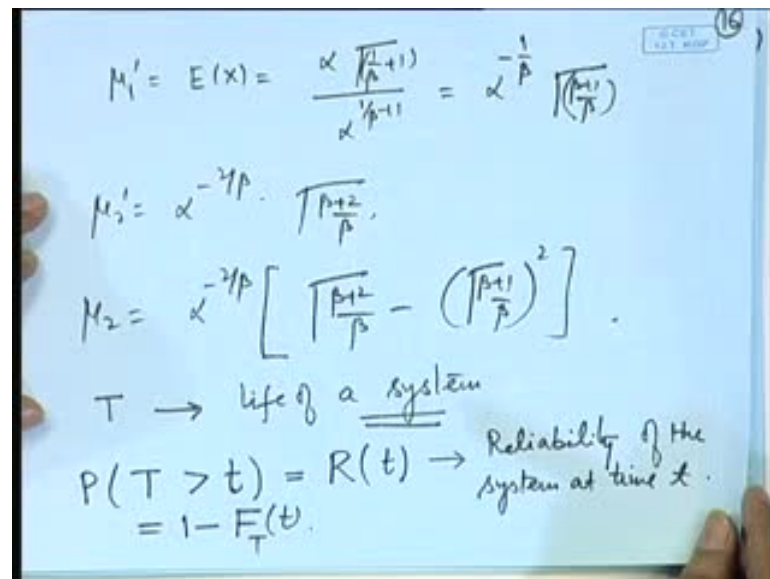 16
μ₁' = E(X) = α Γ(1/β + 1) / α^(1/β + 1) = α^(-1/β) Γ(β+1/β)
μ₂' = α^(-2/β) · Γ(β+2/β) .
μ₂ = α^(-2/β) [ Γ(β+2/β) - (Γ(β+1/β))² ] .
T → life of a system
P(T > t) = R(t) → Reliability of the system at time t .
= 1 - F_T(t) .